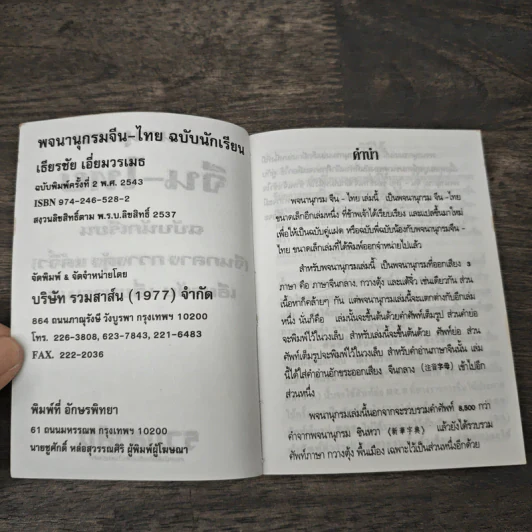 พจนานุกรมจีน-ไทย ฉบับนักเรียน
เธียรชัย เอี่ยมวรเมธ
ฉบับพิมพ์ครั้งที่ 2 พ.ศ. 2543
ISBN 974-246-528-2
สงวนลิขสิทธิ์ตาม พ.ร.บ.ลิขสิทธิ์ 2537
จัดพิมพ์ & จัดจำหน่ายโดย
บริษัท รวมสาส์น (1977) จำกัด
864 ถนนภาณุรังษี วังบูรพา กรุงเทพฯ 10200
โทร. 226-3808, 623-7843, 221-6483
FAX. 222-2036
พิมพ์ที่ อักษรพิทยา
61 ถนนมหรรณพ กรุงเทพฯ 10200
นายชูศักดิ์ หล่อสุวรรณศิริ ผู้พิมพ์ผู้โฆษณา
คำนำ
พจนานุกรม จีน - ไทย เล่มนี้ เป็นพจนานุกรม จีน - ไทย
ขนาดเล็กอีกเล่มหนึ่ง ที่ข้าพเจ้าได้เรียบเรียง และแปลขึ้นมาใหม่
เพื่อให้เป็นฉบับคู่แฝด หรือฉบับพี่ฉบับน้องกับพจนานุกรมจีน -
ไทย ขนาดเล็กเล่มที่ได้พิมพ์ออกจำหน่ายไปแล้ว
สำหรับพจนานุกรมเล่มนี้ เป็นพจนานุกรมที่ออกเสียง 3
ภาษา คือ ภาษาจีนกลาง, กวางตุ้ง และแต้จิ๋ว เช่นเดียวกัน ส่วน
เนื้อหาก็คล้ายๆ กัน แต่พจนานุกรมเล่มนี้จะแตกต่างกับอีกเล่ม
หนึ่ง นั่นก็คือ เล่มนั้นจะขึ้นต้นด้วยคำศัพท์เต็มรูป ส่วนคำย่อ
จะพิมพ์ไว้ในวงเล็บ สำหรับเล่มนี้จะขึ้นต้นด้วย ศัพท์ย่อ ส่วน
ศัพท์เต็มรูปจะพิมพ์ไว้ในวงเล็บ สำหรับคำอ่านภาษาจีนนั้น เล่ม
นี้ได้ใส่คำอ่านอักขระออกเสียง จีนกลาง (注音字母) เข้าไปอีก
ส่วนหนึ่ง
พจนานุกรมเล่มนี้นอกจากจะรวบรวมคำศัพท์ 8,500 กว่า
คำจากพจนานุกรม ซินหวา (新華字典) แล้วยังได้รวบรวม
ศัพท์ภาษา กวางตุ้ง พื้นเมือง เฉพาะไว้เป็นส่วนหนึ่งอีกด้วย